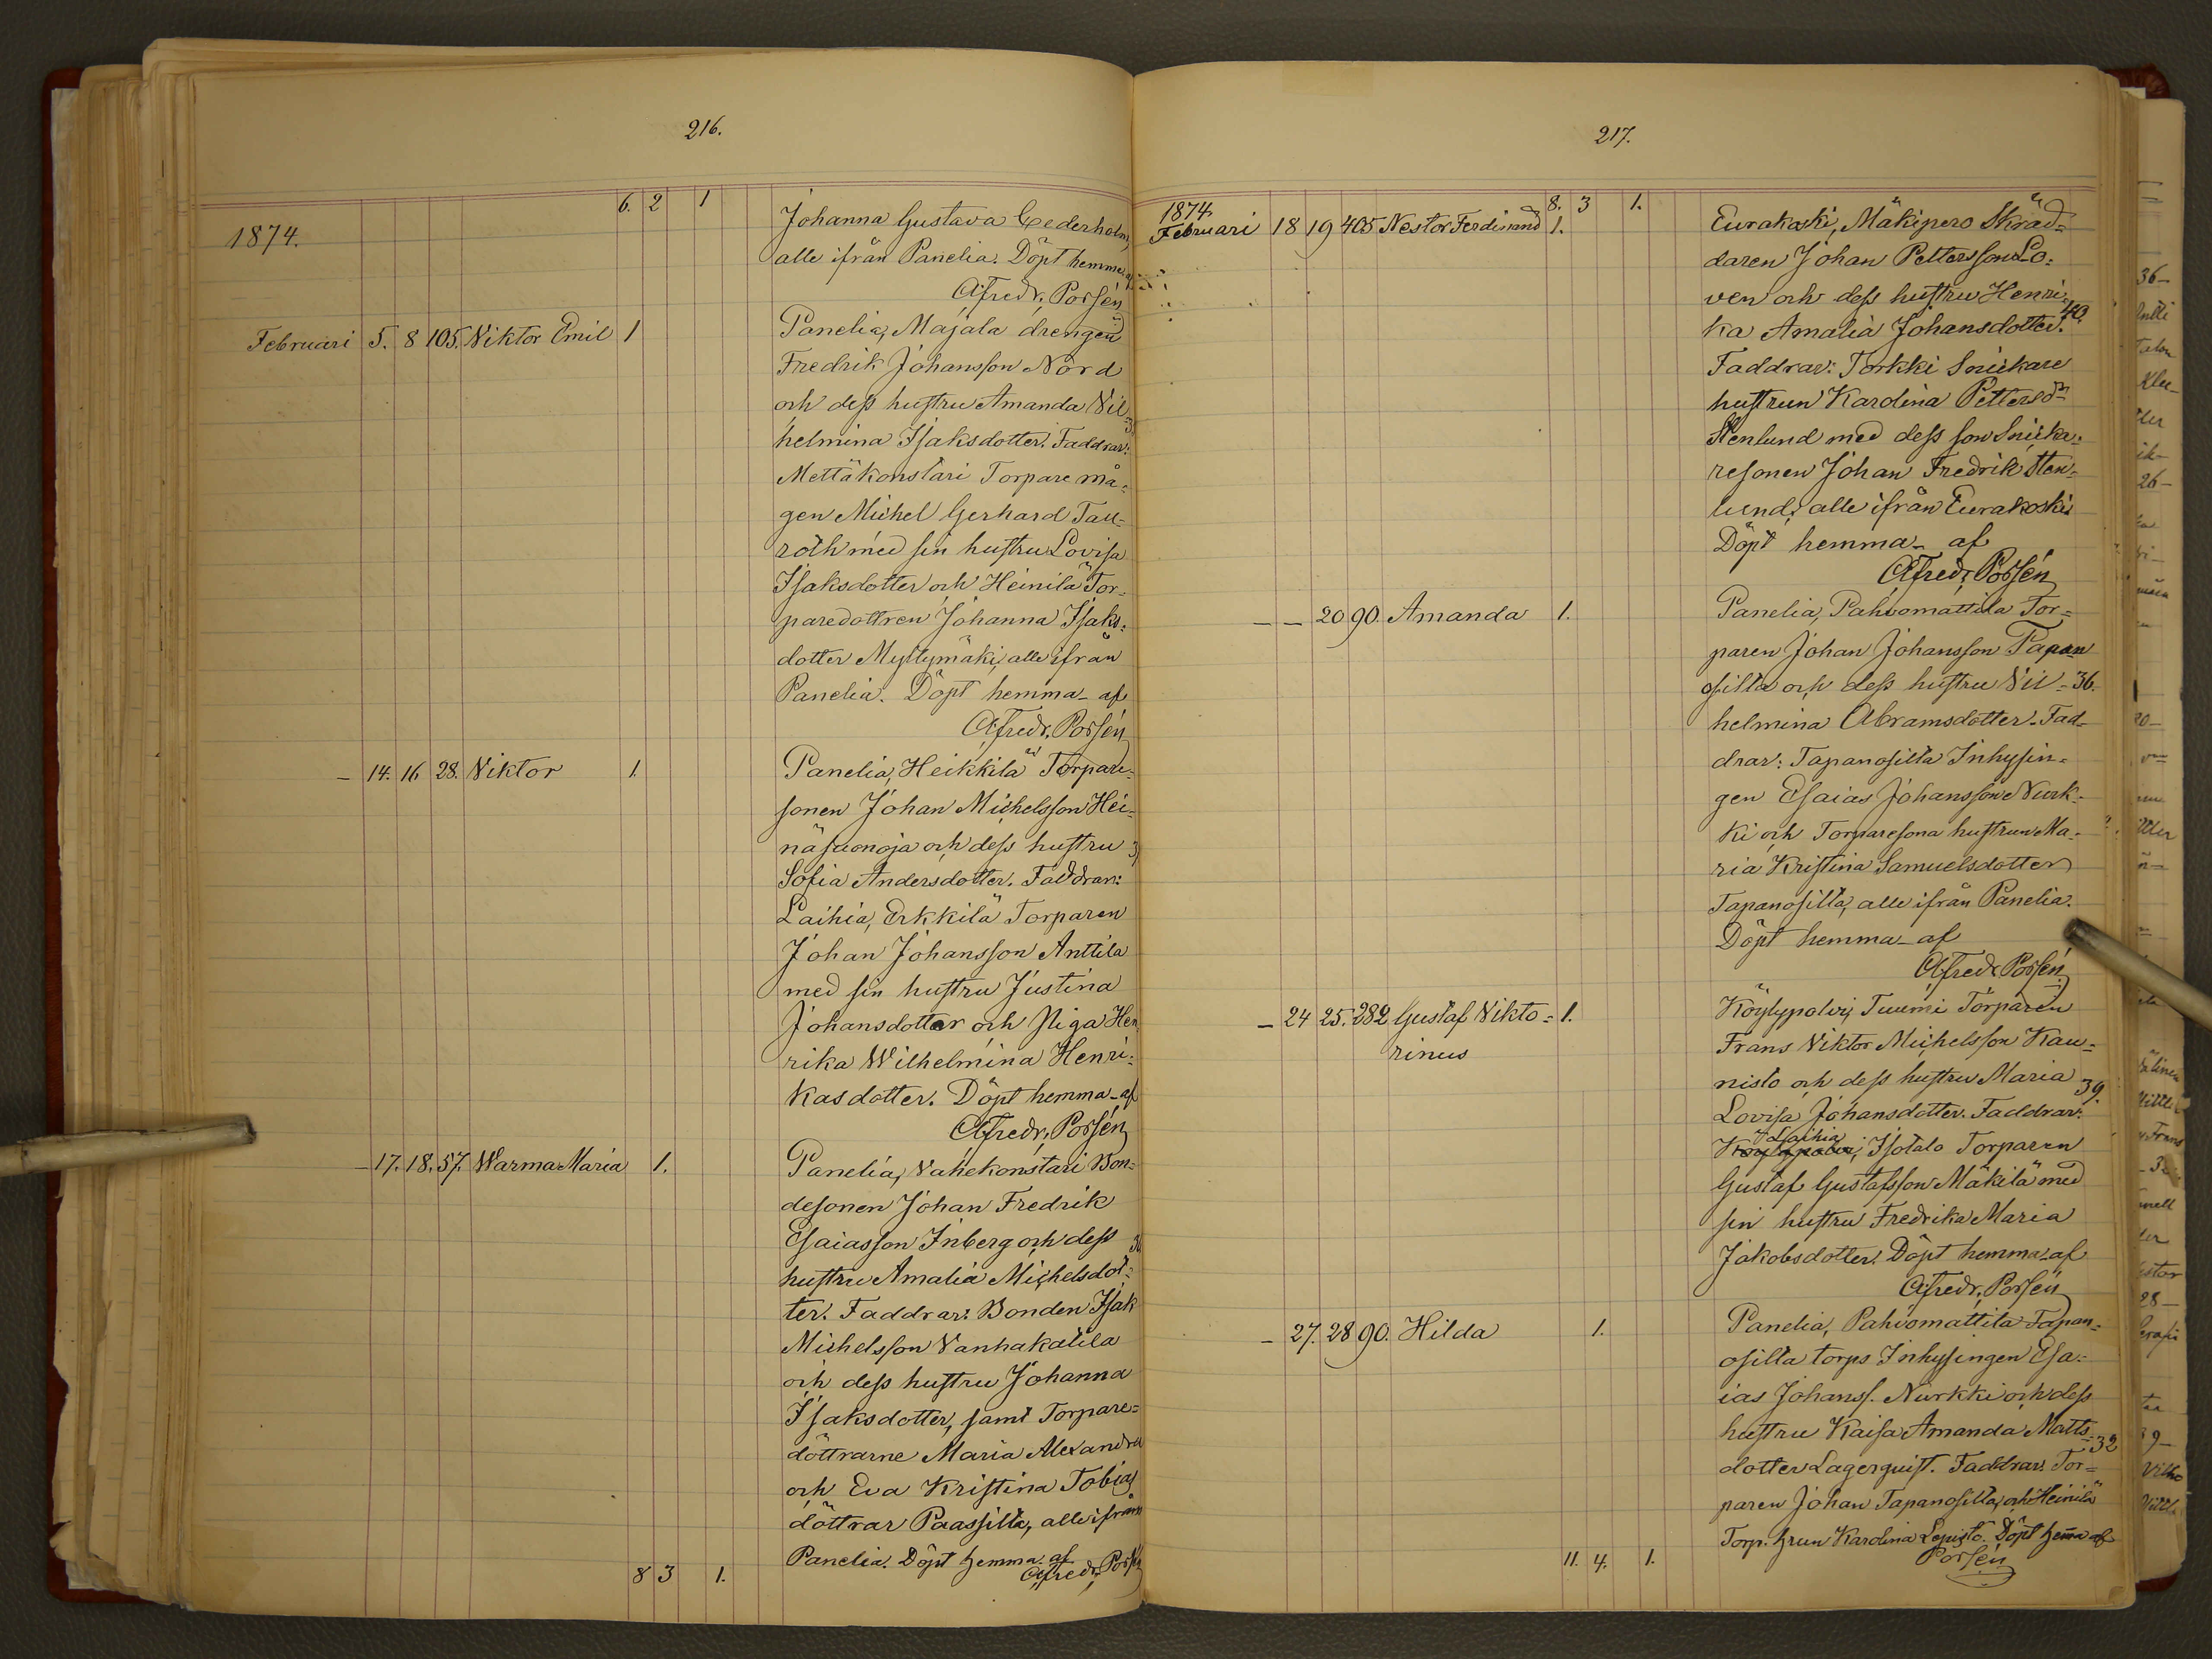 216.
6. 2 1
1874.
Johanna Gustava Cederholm,
alle ifrån Panelia. Döpt hemma af
Afredr. Porsén
Februari 5. 8 105. Viktor Emil 1
Panelia, Majala drengen
Fredrik Johansson Nord
och dess hustru Amanda Vil=
helmina Isaksdotter. Faddrar:
Mettäkonstari Torpare må=
gen Michel Gerhard Tau=
roth med sin hustru Lovisa
Isaksdotter och Heinilä Tor=
paredottren Johanna Isaks=
dotter Myllymäki, alle ifrån
Panelia. Döpt hemma af
Afredr. Porsén
– 14. 16 28. Viktor 1.
Panelia, Heikkilä Torpare=
sonen Johan Michelsson Hei=
näsuonoja och dess hustru
Sofia Andersdotter. Faddrar:
Laihia, Erkkilä Torparen
Johan Johansson Anttila
med sin hustru Justina
Johansdotter och Piga Hen
rika Wilhelmina Henri=
kasdotter. Döpt hemma af
Afredr. Porsén
– 17. 18. 57. Warma Maria 1.
Panelia, Vahekonstari Bon=
desonen Johan Fredrik
Esaiasson Inberg och dess
hustru Amalia Michelsdot=
ter. Faddrar: Bonden Isak
Michelsson Vanhakatila
och dess hustru Johanna
Isaksdotter, samt Torpare=
döttrarne Maria Alexandra
och Eva Kristina Tobias
döttrar Paassilta, alle ifrån
Panelia. Döpt hemma af
Afredr. Porsén
8 3 1.
217.
8. 3 1.
1874.
Februari 18 19 405 Nestor Ferdinand 1.
Eurakoski, Mäkipero Skräd=
daren Johan Pettersson Lo=
ven och dess hustru Henri=
ka Amalia Johansdotter. 40.
Faddrar: Torkki Snickare
hustrun Karolina Pettersdr
Stenlund med dess son Snicka=
resonen Johan Fredrik Sten=
lund, alle ifrån Eurakoski
Döpt hemma af
Afredr. Porsén
– – 20 90. Amanda 1.
Panelia, Pahvomattila Tor=
paren Johan Johansson Tapan
osilta och dess hustru Vil= 36.
helmina Abramsdotter. Fad=
drar: Tapanosilta Inhysin=
gen Esaias Johansson Nurk=
ki och Torparesona hustrun Ma=
ria Kristina Samuelsdotter
Tapanosilta, alle ifrån Panelia.
Döpt hemma af
Afredr. Porsén
– 24 25. 282 Gustaf Vikto= 1.
rinus
Köylypolvi, Tuumi Torparen
Frans Viktor Michelsson Kau=
nisto och dess hustru Maria 39.
Lovisa Johansdotter. Faddrar:
Laihia
Köylypolvi, Isotalo Torparen
Gustaf Gustafsson Mäkilä med
sin hustru Fredrika Maria
Jakobsdotter. Döpt hemma af
Afredr. Porsén
– 27. 28 90. Hilda 1.
Panelia, Pahvomattila Tapan=
osilta torps Inhysingen Esa=
ias Johanss. Nurkki och dess
hustru Kaisa Amanda Matts= 32
dotter Lagerquist. Faddrar: Tor=
paren Johan Tapanosilta, och Heinilä
Torp. hrun Karolina Lepistö. Döpt hema af
Porsén
11. 4. 1.